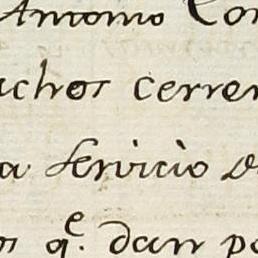 Antonio Con
uchos cerrer
a servicio de
os q.^e dan po